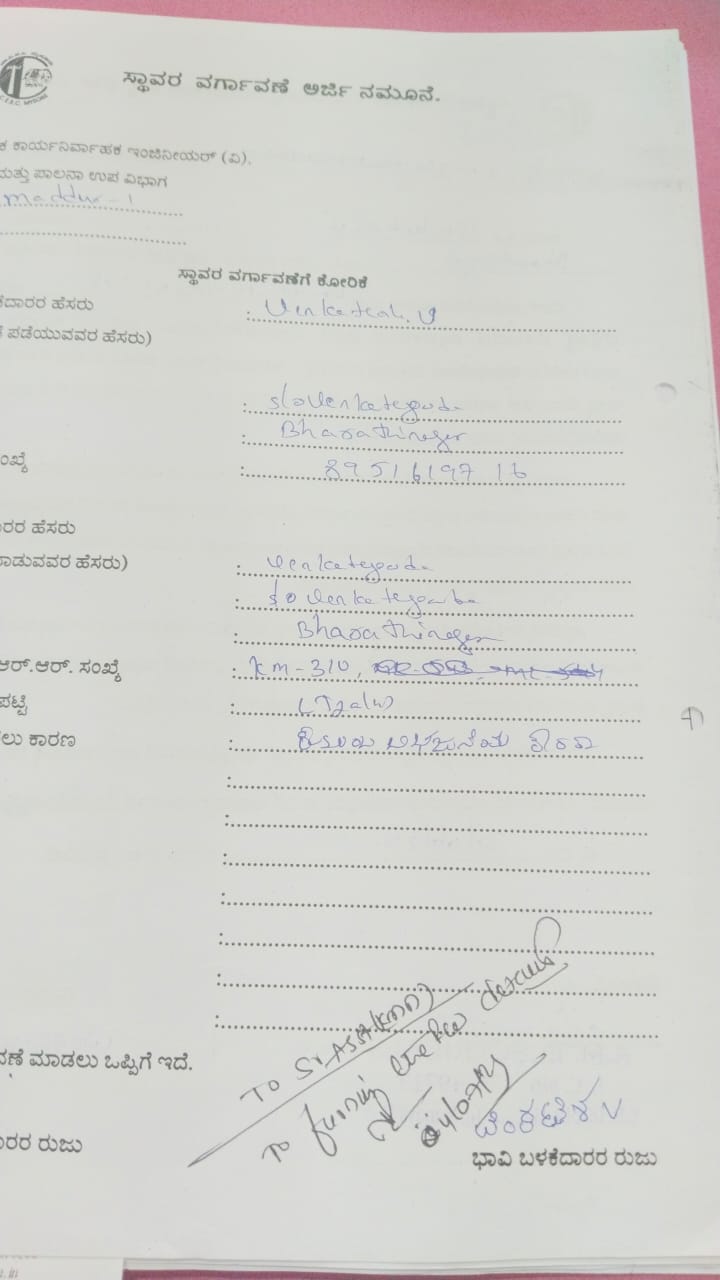 C.E.S.C. MYSORE
ಸ್ಥಾವರ ವರ್ಗಾವಣೆ ಅರ್ಜಿ ನಮೂನೆ.
ಕ ಕಾರ್ಯನಿರ್ವಾಹಕ ಇಂಜಿನೀಯರ್ (ವಿ),
ಮತ್ತು ಪಾಲನಾ ಉಪ ವಿಭಾಗ
maddur-1
ಸ್ಥಾವರ ವರ್ಗಾವಣೆಗೆ ಕೋರಿಕೆ
ದಾರರ ಹೆಸರು : Venkatesh. V
ಪಡೆಯುವವರ ಹೆಸರು)
: S/o Venkategowda
: Bharathinagar
ಂಖ್ಯೆ : 8951619716
ಾರರ ಹೆಸರು
ಾಡುವವರ ಹೆಸರು) : Venkategowda
: S/o Venkategowda
: Bharathinagar
ಆರ್.ಆರ್. ಸಂಖ್ಯೆ : KM-310,
ಪಟ್ಟಿ :
ಲು ಕಾರಣ :
:
:
:
:
:
:
:
TO Sr.Asst(KMD)
To furnish the details
ವಣೆ ಮಾಡಲು ಒಪ್ಪಿಗೆ ಇದೆ.
ವೆಂಕಟೇಶ V
ಾರರ ರುಜು
ಭಾವಿ ಬಳಕೆದಾರರ ರುಜು